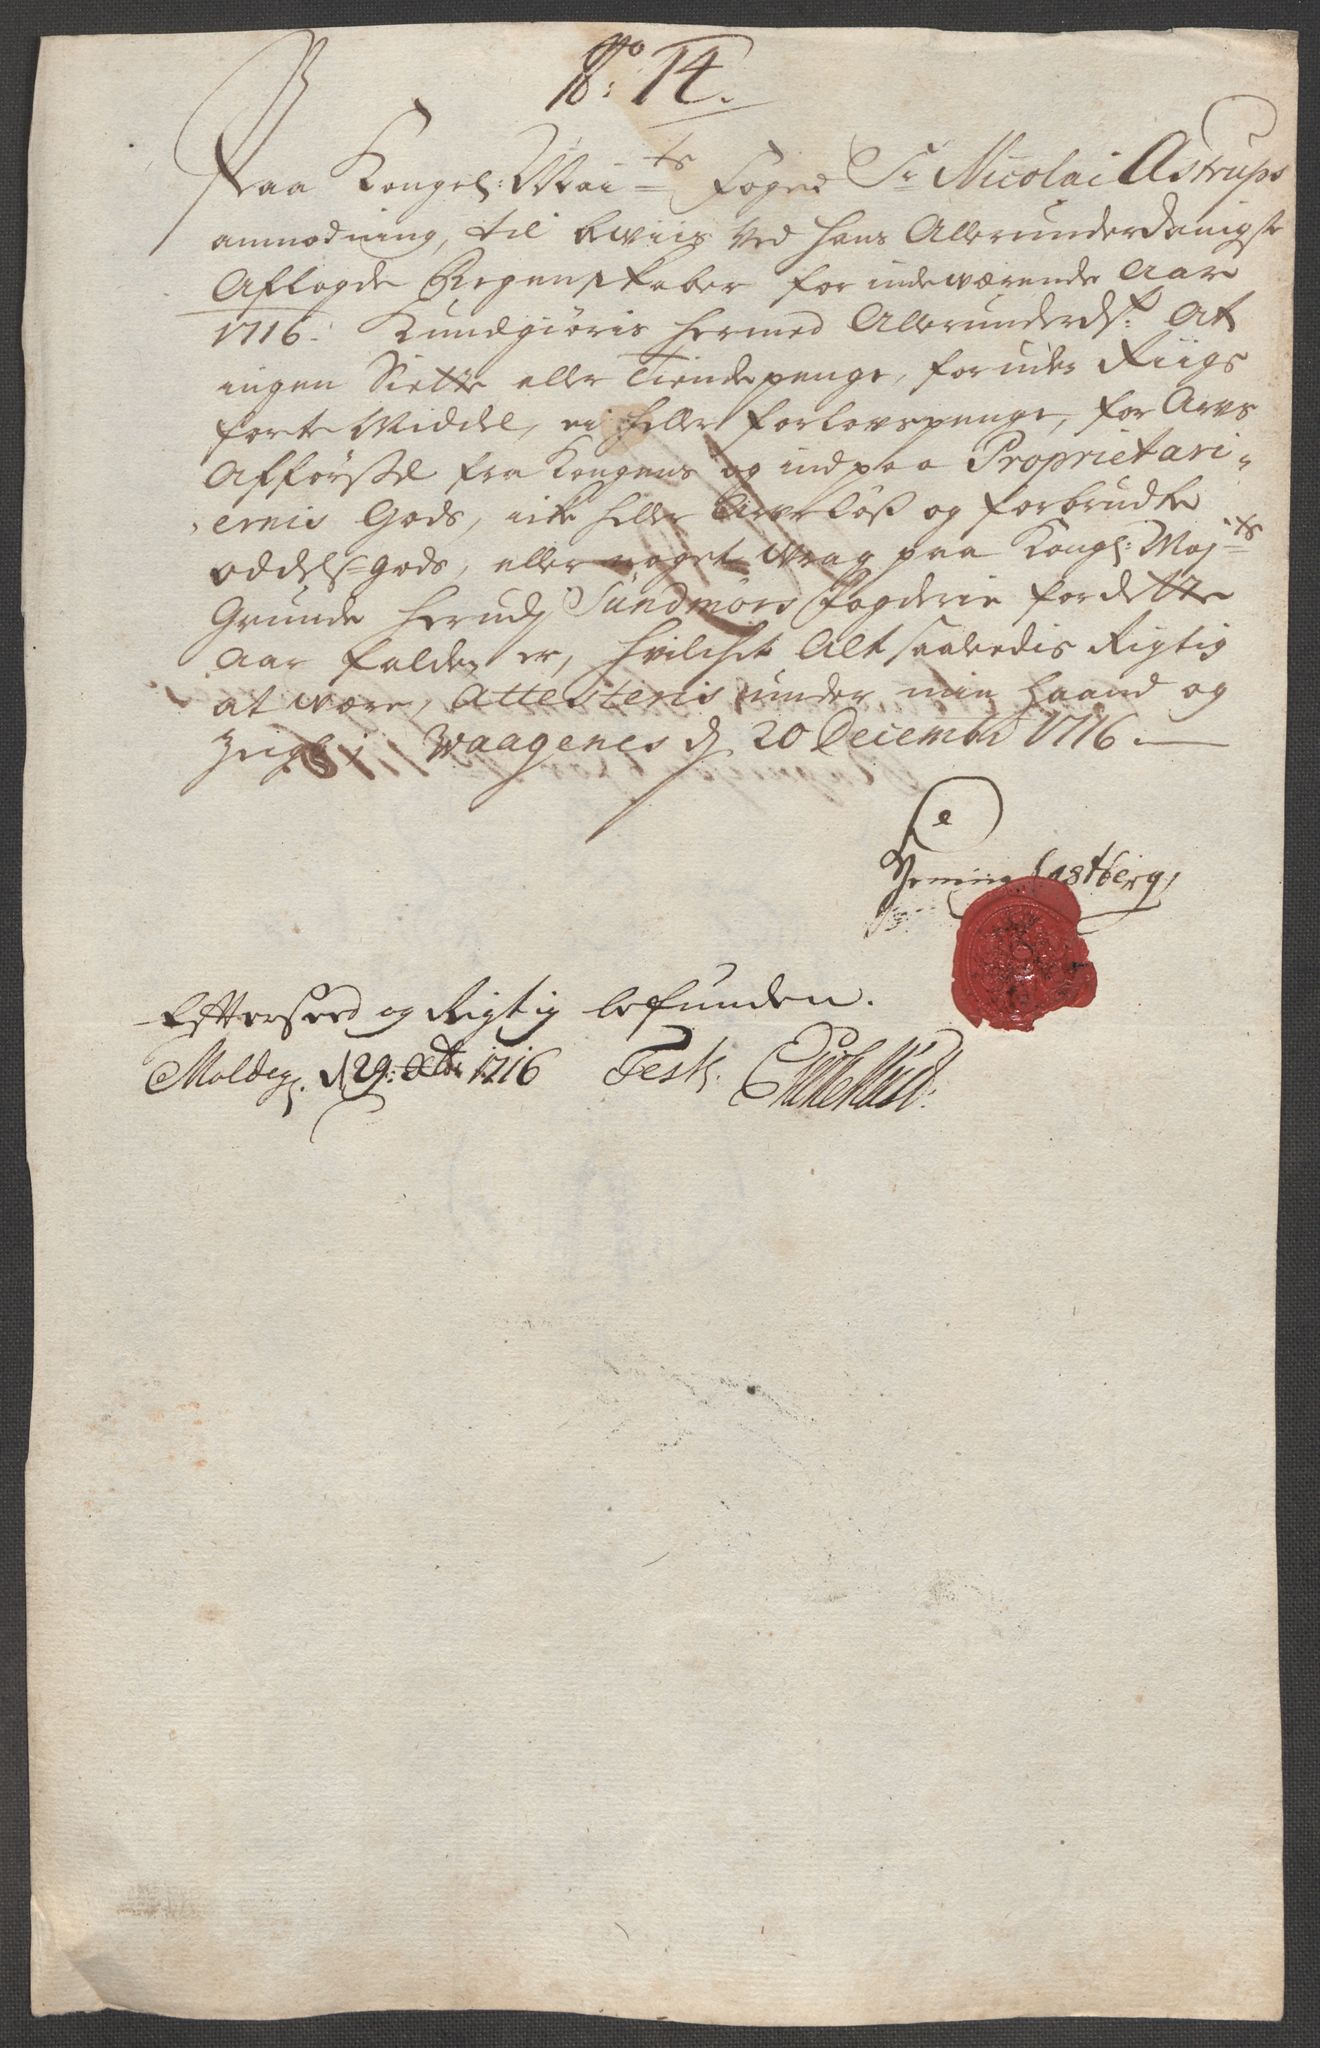 No: 14.
Paa Kongel: Mai:ts Foged Sr Nicolai Astrups
anmodning, til Beviis ved hans Allerunderdanigste
Aflagde Regenskaber for indeværende Aar
1716. Kundgiøris hermed Allerunderds:t At
ingen Siette eller Tiendepenge, for uden Riigs
førte Middel, ei heller forlovspenge, for Arvs
Afførsel fra Kongens og ind paa Proprietari-
ernis Gods, icke heller Arveløß og forbrudte
oddels-gods, eller noget wrag paa Kongl: Maj:ts
Grunde herudj Sundmørs fogderie for dette
Aar falden er, hvilchet Alt saaledis Rigtig
at være, Attesteris under min haand og
Zignet Waagenes d 20 Decembr 1716.
Hening Castberg
Efterseed og Rigtig befunden.
Molde d. 29: Xbr 1716 Test.